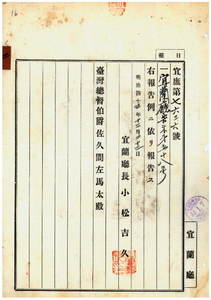 報 日
宜庶第七六三六號
一宜蘭廳
右報告例ニ依リ報告ス
明治四十
宜蘭廳長小松吉久
臺灣總督伯爵佐久間左馬太殿
宜蘭廳